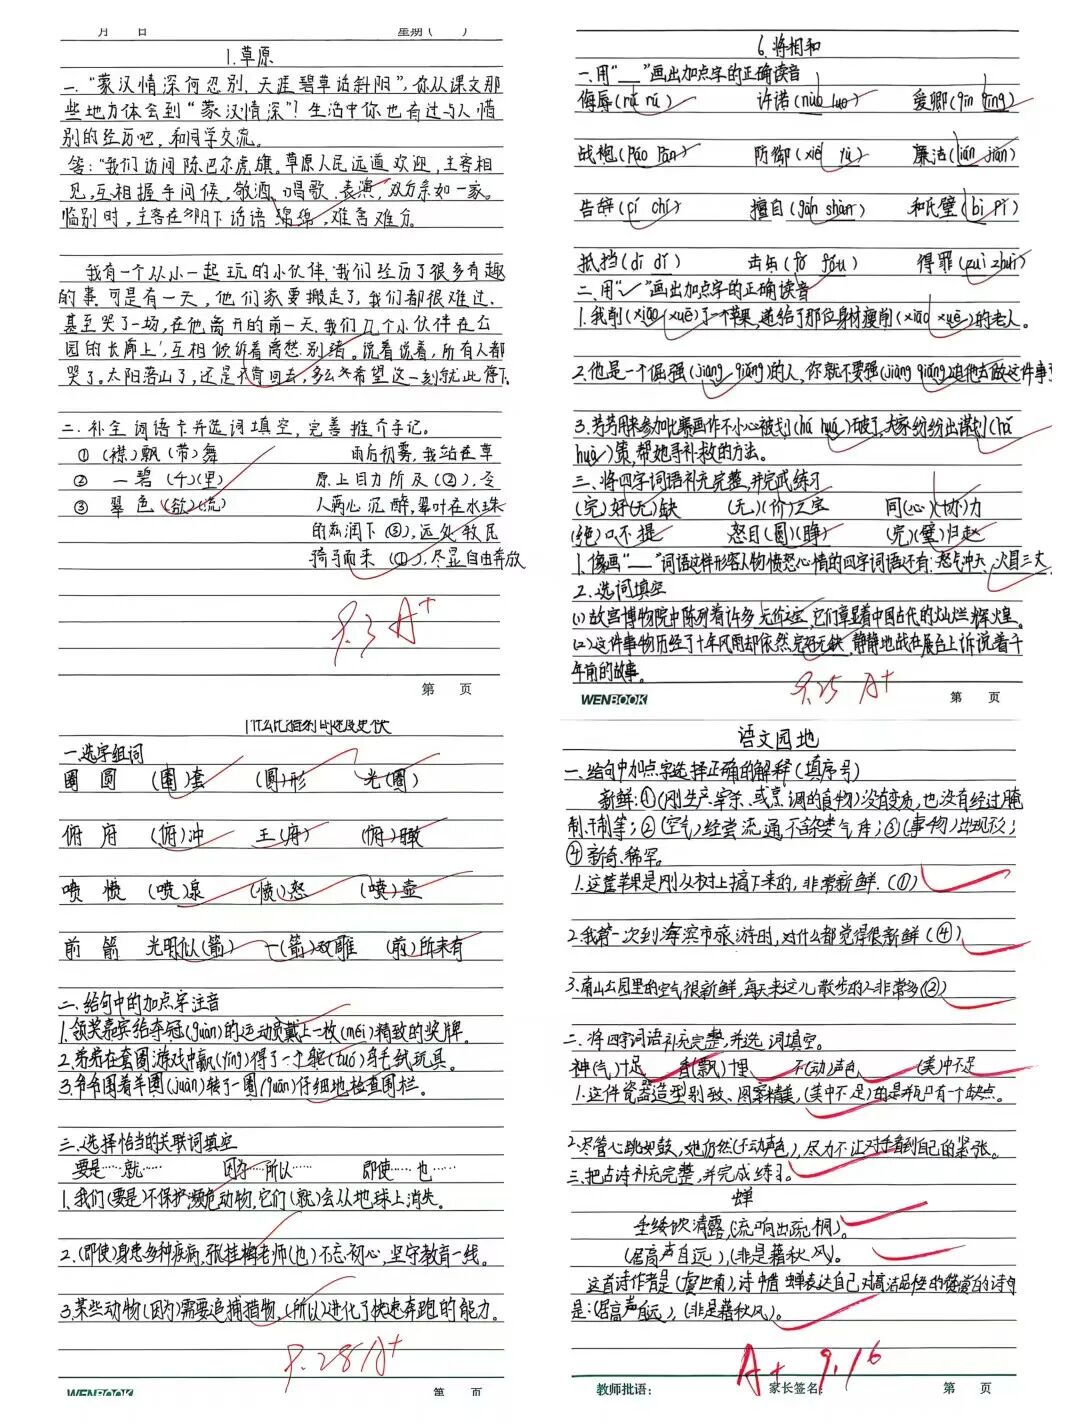 月 日 星期( )
1.草原
一."蒙汉情深何忍别,天涯碧草话斜阳",你从课文那
些地方体会到"蒙汉情深"?生活中你也有过与人惜
别的经历吧,和同学交流。
答:"我们访问陈巴尔虎旗。草原人民远道欢迎,主客相
见,互相握手问候,敬酒、唱歌、表演,双方亲如一家。
临别时,主客在夕阳下话语绵绵,难舍难分。
我有一个从小一起玩的小伙伴,我们经历了很多有趣
的事.可是有一天,他们家要搬走了,我们都很难过、
甚至哭了一场,在他离开的前一天.我们几个小伙伴在公
园的长廊上,互相倾诉着离愁别绪。说着说着,所有人都
哭了。太阳落山了,还是不肯回去,多么希望这一刻就此停下.
二、补全词语卡并选词填空,完善推介手记。
① (襟)飘(带)舞 雨后初雾,我站在草
② 一碧(千)(里) 原上目力所及(②),令
③ 翠色(欲)(流) 人满心沉醉,草叶在水珠
的滋润下(③),远处牧民
骑马而来(①),尽显自由奔放
9.3 A+
第 页
6.将相和
一.用"__"画出加点字的正确读音
侮辱(rǔ rù) 许诺(nuò luo) 爱卿(qīn qīng)
战袍(páo pāo) 防御(xiè yù) 廉洁(lián jiān)
告辞(cí chí) 擅自(gán shàn) 和氏璧(bì pì)
抵挡(dǐ dí) 击缶(fǒ fǒu) 得罪(zuì zhuì)
二.用"✓"画出加点字的正确读音
1.我削(xiāo xuē)了一个苹果,递给了那位身材瘦削(xiāo xuē)的老人。
2.他是一个倔强(jiàng qiáng)的人,你就不要强(jiàng qiǎng)迫他去做这件事
3.芳芳用来参加比赛画作不小心被划(huá huà)破了,大家纷纷出谋划(huá
huà)策,帮她寻补救的方法。
三.将四字词语补充完整,并完成练习
(完)好(无)缺 (无)(价)之宝 同(心)(协)力
(绝)口不提 怒目(圆)(睁) (完)(璧)归赵
1.像画"__"词语这样形容人物愤怒心情的四字词语还有:怒气冲天、火冒三丈
2.选词填空
(1)故宫博物院中陈列着许多无价之宝,它们彰显着中国古代的灿烂辉煌。
(2)这件事物历经了十年风雨却依然完好无缺,静静地战在展台上诉说着千
年前的故事。
9.25 A+
WENBOOK 第 页
什么比猎豹的速度更快
一.选字组词
圈 圆 (圈)套 (圆)形 光(圈)
俯 府 (俯)冲 王(府) (俯)瞰
喷 愤 (喷)泉 (愤)怒 (喷)壶
前 箭 光明似(箭) 一(箭)双雕 (前)所未有
二、给句中的加点字注音
1.颁奖嘉宾给夺冠(guàn)的运动员戴上一枚(méi)精致的奖牌。
2.芳芳在套圈游戏中赢(yíng)得了一个鸵(tuó)鸟毛绒玩具。
3.爷爷围着羊圈(juàn)转了一圈(quān)仔细地检查围栏。
三、选择恰当的关联词填空
要是……就…… 因为……所以…… 即使……也……
1.我们(要是)不保护濒危动物,它们(就)会从地球上消失。
2.(即使)身患多种疾病,张桂梅老师(也)不忘初心,坚守教育一线。
3.某些动物(因为)需要追捕猎物,(所以)进化了快速奔跑的能力。
9.28 A+
WENBOOK 第 页
语文园地
一、给句中加点字选择正确的解释(填序号)
新鲜:①(刚生产、宰杀、或烹调的食物)没有变质,也没有经过腌
制、干制等;②(空气)经常流通不含杂类气体;③(事物)出现不久;
④新奇、稀罕。
1.这筐苹果是刚从树上摘下来的,非常新鲜.(①)
2.我第一次到海滨市旅游时,对什么都觉得很新鲜(④)
3.南山公园里的空气很新鲜,每天来这儿散步的人非常多(②)
二、将四字词语补充完整,并选词填空。
神(气)十足 香(飘)十里 不(动)声色 (美)中不足
1.这件瓷器造型别致、图案精美,(美中不足)的是瓶口有一个缺点。
2.尽管心跳如鼓,她仍然(不动声色),尽力不让对手看到自己的紧张。
三、把古诗补充完整,并完成练习。
蝉
垂緌饮清露,(流响出疏桐)。
(居高声自远),(非是藉秋风)。
这首诗作者是(虞世南),诗中借蝉表达自己对高洁品性的赞赏的诗句
是:(居高声自远),(非是藉秋风)。
A+ 9.16
教师批语: 家长签名: 第 页